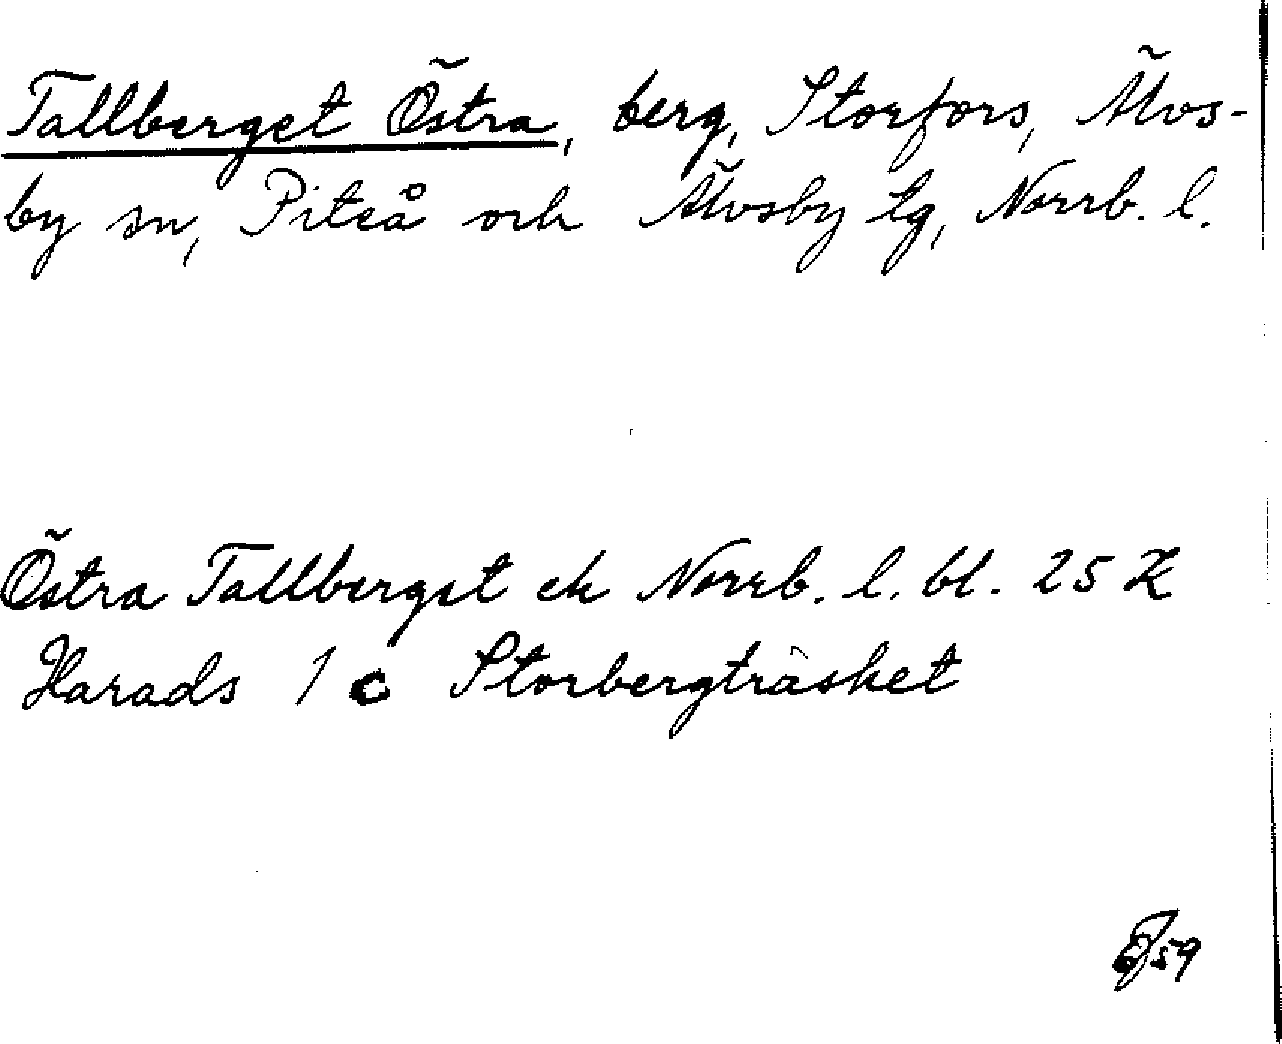 Tallberget Östra, berg, Storfors, Älvs-
by sn, Piteå och Älvsby tg, Norrb. l.
Östra Tallberget ek Norrb. l. bl. 25 K
Harads 1 c Storbergträsket
/59